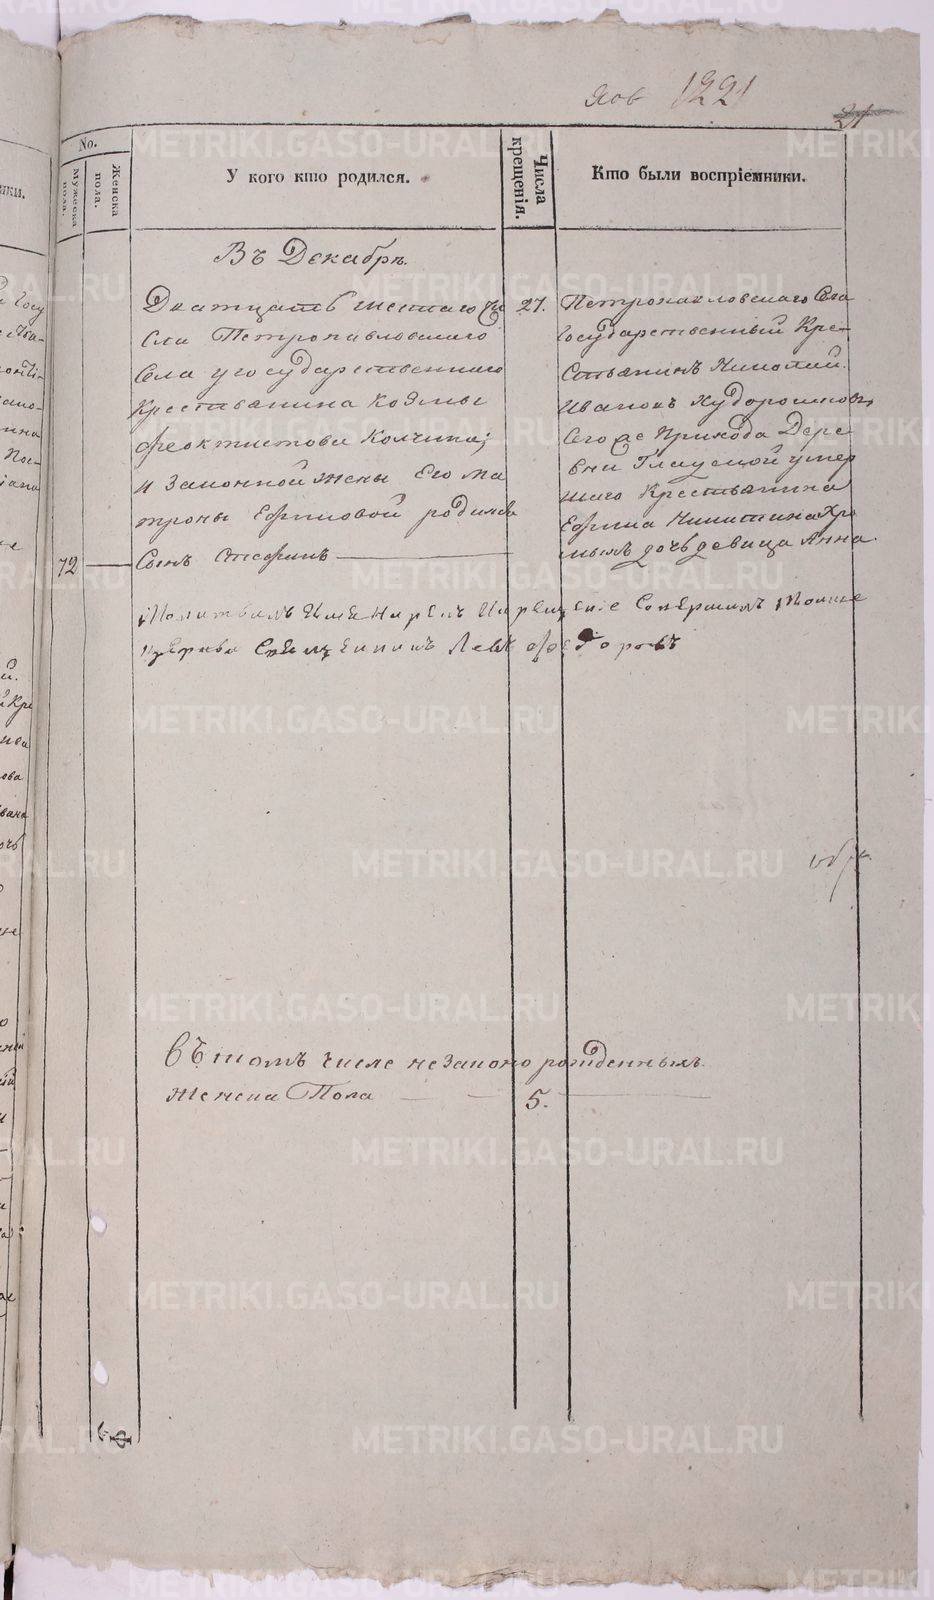 1221
21
No.
Мужеска пола.
Женска пола.
У кого кто родился.
Числа крещенія.
Кто были воспріемники.
Въ Декабрѣ.
Дватцать шестаго Чи
сла Петропавловскаго
Села у государственнаго
Крестьянина Козмы
Феоктистова Колчина;
и Законной жены Его Ма
троны Ефимовой родился
72
Сынъ Стефанъ
27.
Петропавловскаго Села
Государственный Кре-
стьянинъ Николай
Ивановъ Худорошковъ
Сего же Прихода Дере-
вни умер
шаго Крестьянина
Ефима Никитина Хро
мыхъ дочь девица Анна.
Молитвилъ Имя Нарекъ И Крещеніе Совершилъ
Священникъ Левъ Федоровъ
въ томъ числе незаконо рожденныхъ
Женска Пола 5.
METRIKI.GASO-URAL.RU